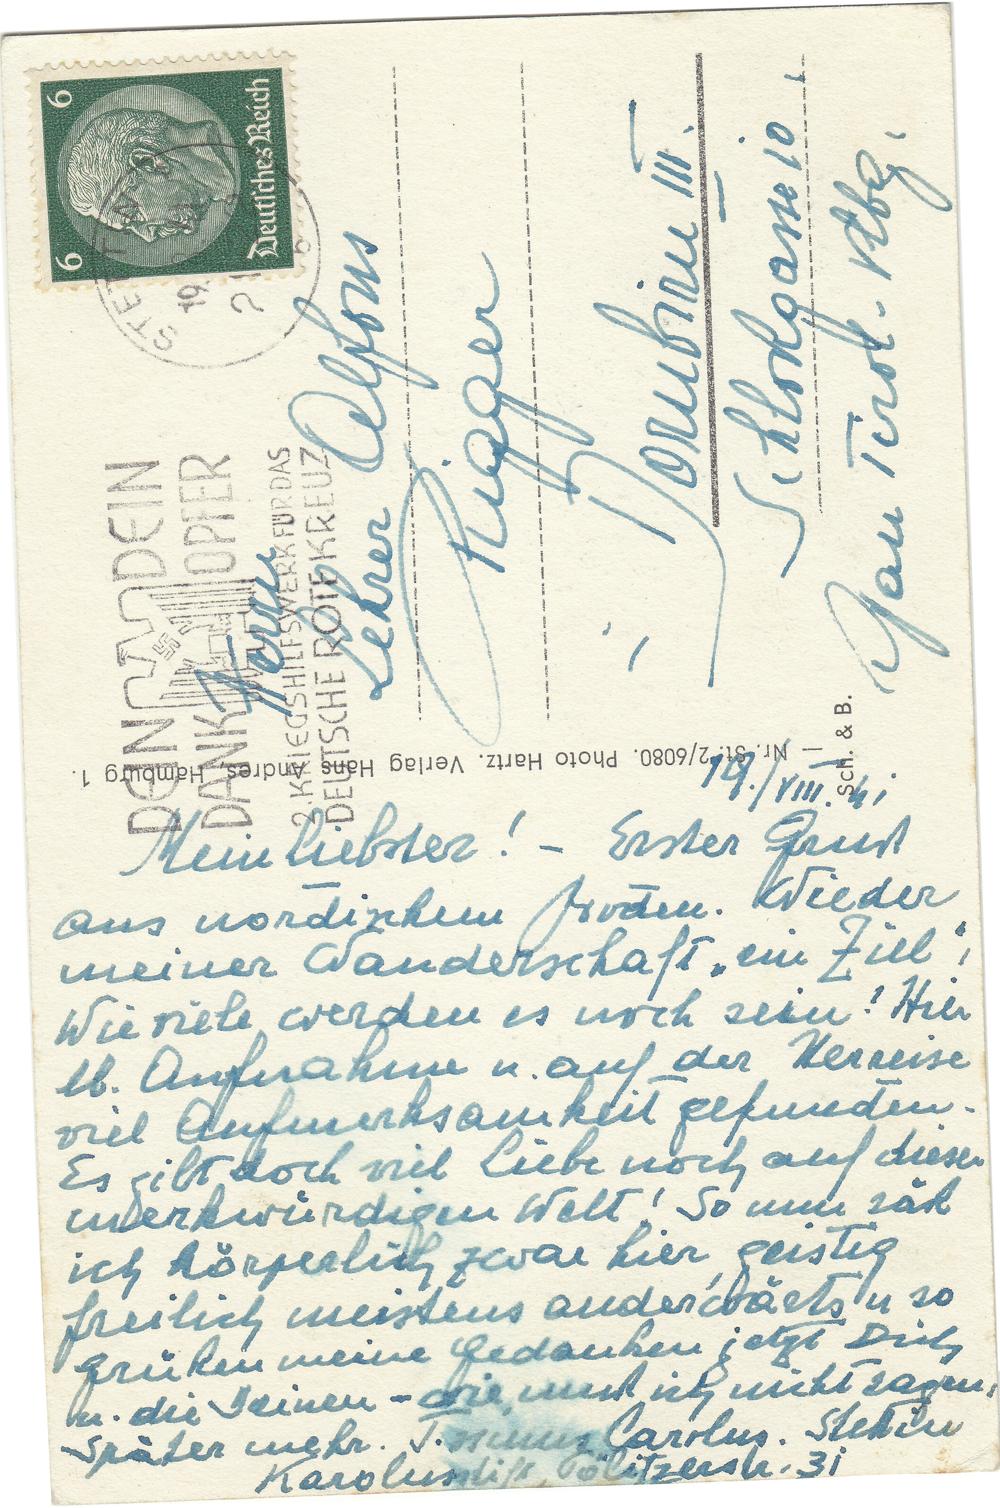 Mein Liebster! – Erster Gruß
aus nordischem Boden. Wieder
meiner Wanderschaft „ein Ziel“!
Wie viele werden es noch sein! Hier
lb. Aufnahme u. auf der Herreise
viel Aufmerksamkeit gefunden.
Es gibt doch viel Liebe noch auf dieser
merkwürdigen Welt! So nun
ich körperlich zwar hier, geistig
freilich meistens anderwärts u so
grüßen meine Gedanken jetzt Dich
u. die Deinen – wie, muß ich nicht sagen,
später mehr. Carolus. Stettin
Karolusstift, Pölitzerstr. 31
19./VIII. 41
Herrn
Lehrer Alfons
Rigger
Dornbirn III.
Schloßgasse 10
Gau Tirol - Vlbg.
6 6
Deutsches Reich
STETTIN
19.
DEIN DEIN
DANK OPFER
2. KRIEGSHILFSWERK FÜR DAS
DEUTSCHE ROTE KREUZ
Nr. St. 2/6080. Photo Hartz. Verlag Hans Andres, Hamburg 1.
Sch. & B.